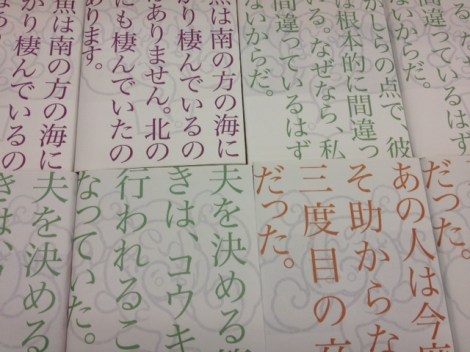 間違っているはず
ないからだ。
かしらの点で、彼
は根本的に間違っ
いる。なぜなら、私
間違っているはず
ないからだ。
魚は南の方の海に
かり棲んでいるの
はありません。北の
にも棲んでいたの
あります。
魚は南の方の海に
かり棲んでいるの
だった。
あの人は今度
そ助からな
三度目の
だった。
夫を決める
きは、コウキ
行われるこ
なっていた。
夫を決める
きは、